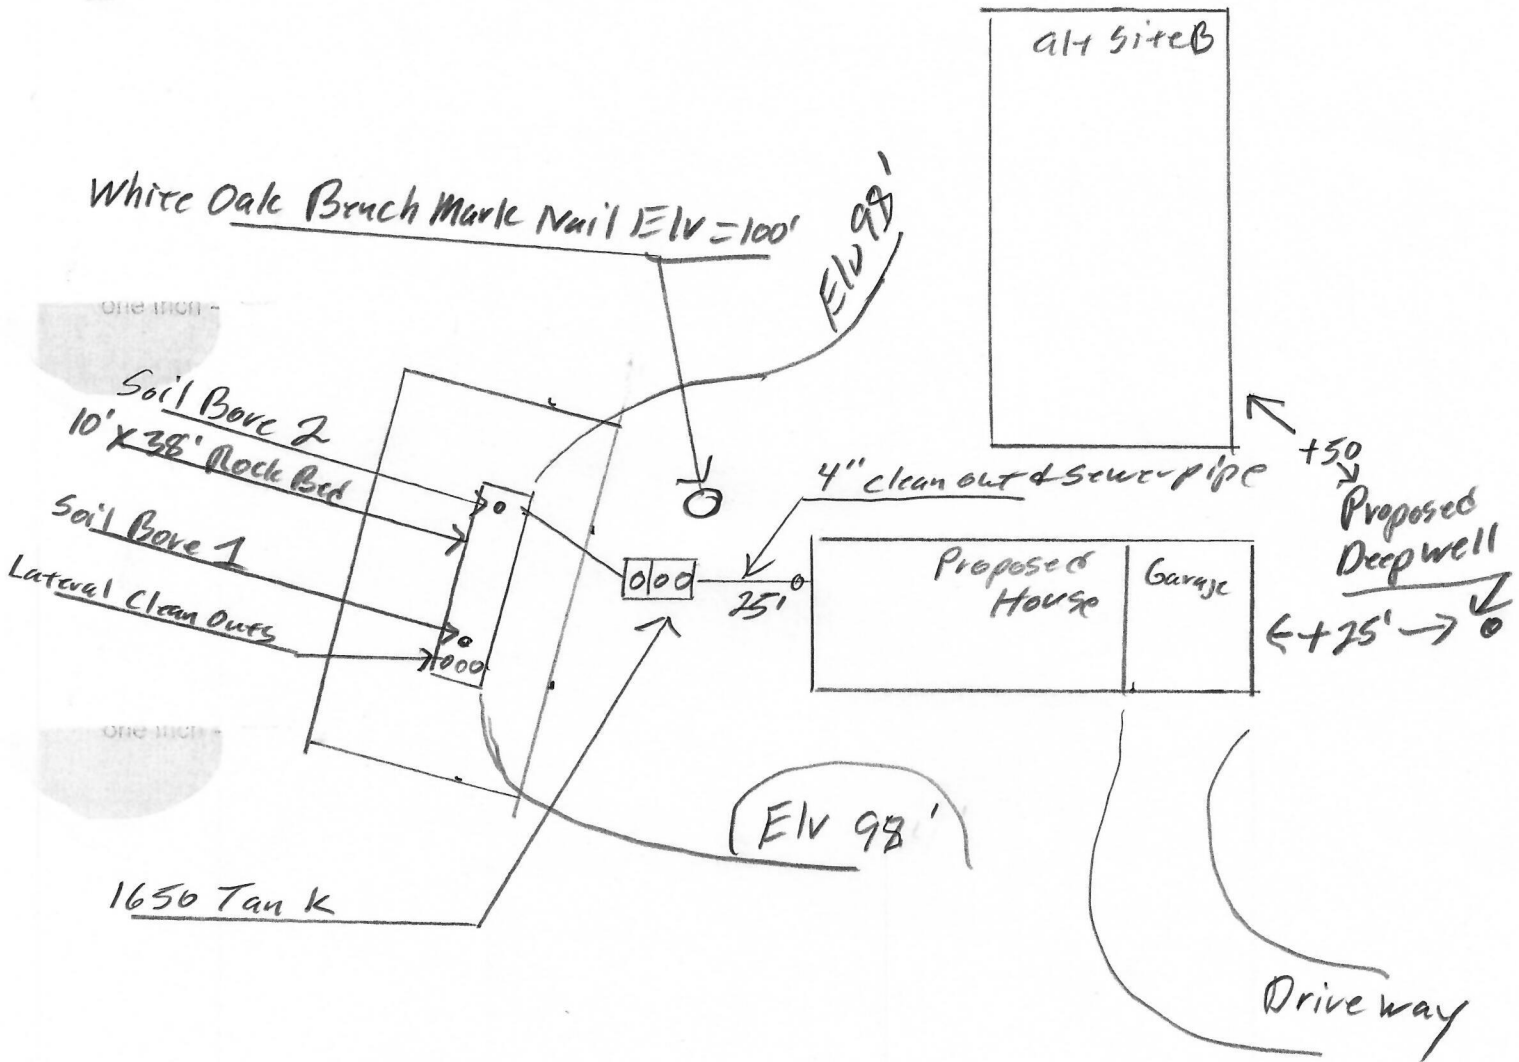 alt Site B
White Oak Bench Mark Nail Elv = 100'
Elv 98'
one inch -
Soil Bore 2
10' x 38' Rock Bed
Soil Bore 1
Lateral Clean Outs
4" clean out & Sewer pipe
25'
+50
Proposed
Deepwell
Proposed
House
Garage
←+25'→
one inch -
Elv 98'
1650 Tank
Driveway